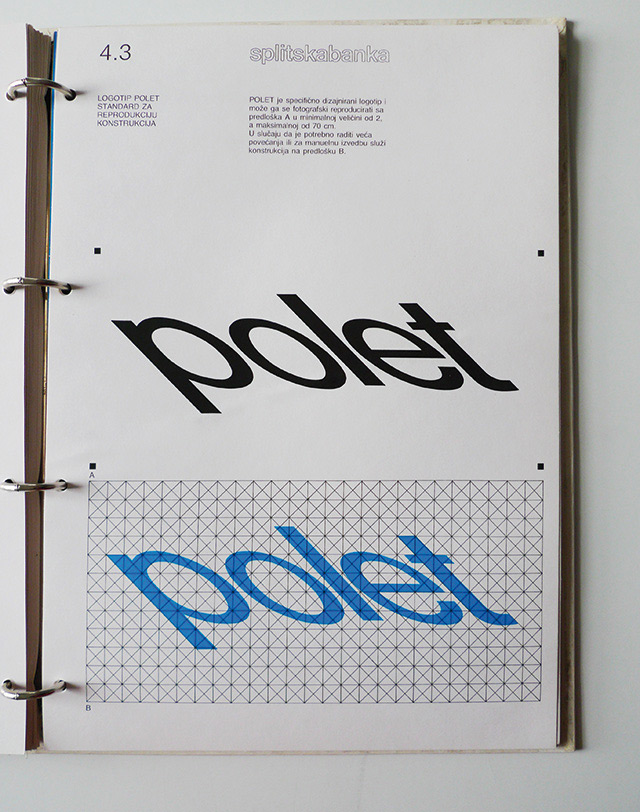 4.3
splitskabanka
LOGOTIP POLET
STANDARD ZA
REPRODUKCIJU
KONSTRUKCIJA
POLET je specifično dizajnirani logotip i
može ga se fotografski reproducirati sa
predloška A u minimalnoj veličini od 2,
a maksimalnoj od 70 cm.
U slučaju da je potrebno raditi veća
povećanja ili za manuelnu izvedbu služi
konstrukcija na predlošku B.
polet
A
polet
B